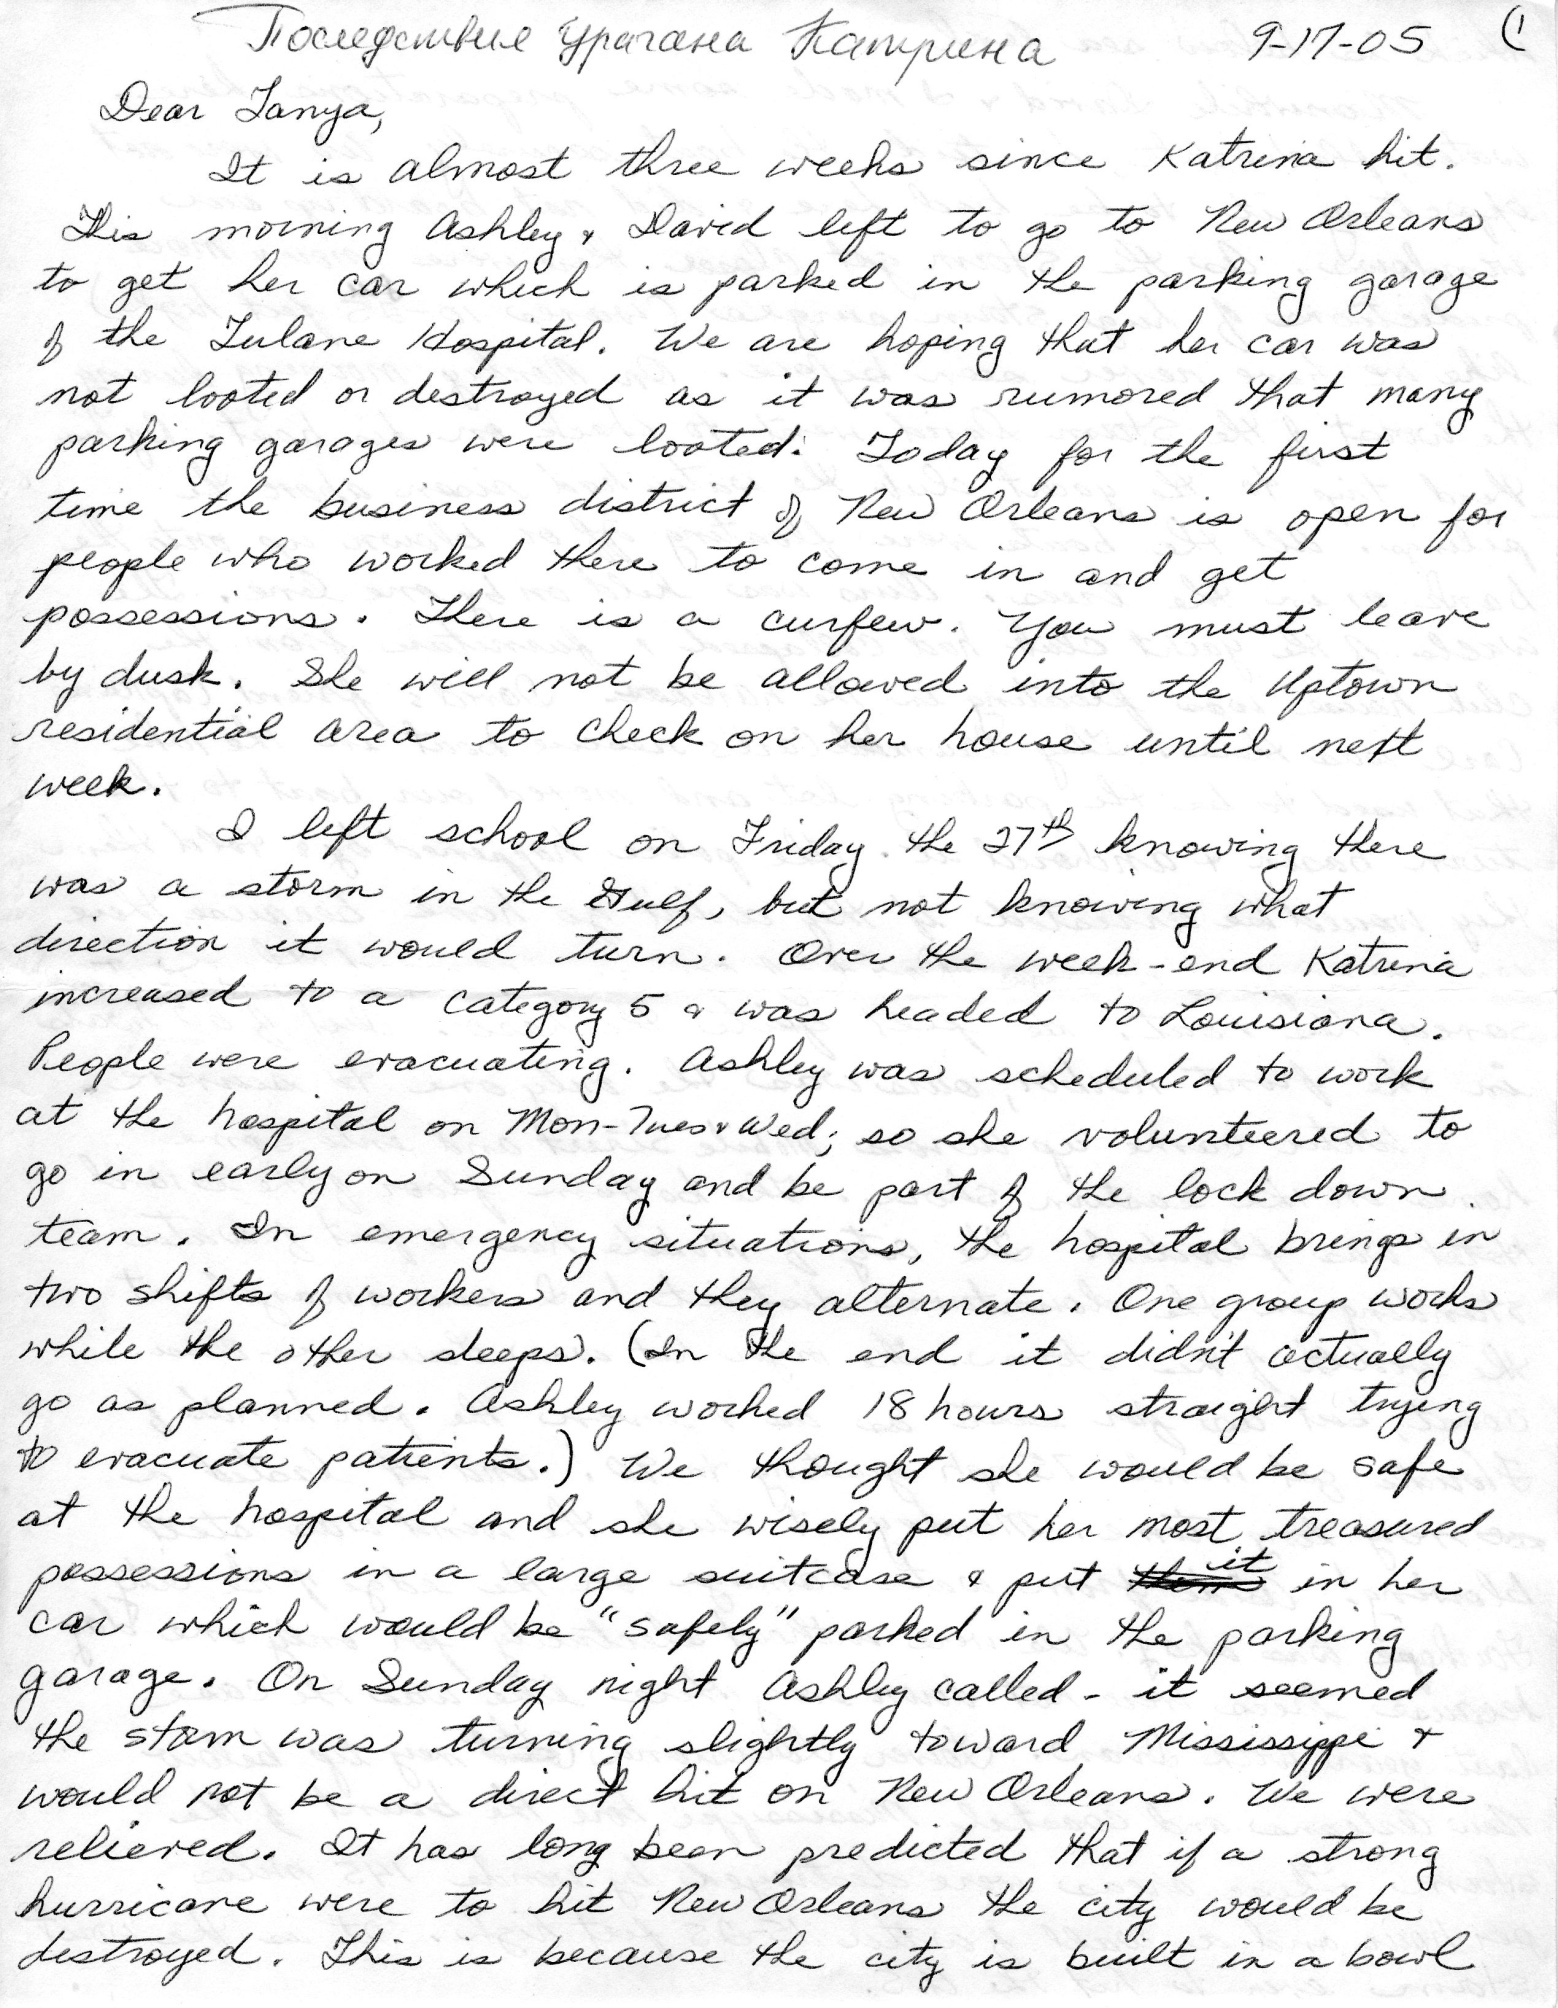 Последствие урагана Катрина 9-17-05 (1
Dear Tanya,
It is almost three weeks since Katrina hit.
This morning Ashley & David left to go to New Orleans
to get her car which is parked in the parking garage
of the Tulane Hospital. We are hoping that her car was
not looted or destroyed as it was rumored that many
parking garages were looted. Today for the first
time the business district of New Orleans is open for
people who worked there to come in and get
possessions. There is a curfew. You must leave
by dusk. She will not be allowed into the Uptown
residential area to check on her house until next
week.
I left school on Friday the 27th knowing there
was a storm in the Gulf, but not knowing what
direction it would turn. Over the week-end Katrina
increased to a category 5 & was headed to Louisiana.
People were evacuating. Ashley was scheduled to work
at the hospital on Mon-Tues & Wed; so she volunteered to
go in early on Sunday and be part of the lock down
team. In emergency situations, the hospital brings in
two shifts of workers and they alternate. One group works
while the other sleeps. (In the end it didn't actually
go as planned. Ashley worked 18 hours straight trying
to evacuate patients.) We thought she would be safe
at the hospital and she wisely put her most treasured
possessions in a large suitcase & put them it in her
car which would be "safely" parked in the parking
garage. On Sunday night Ashley called - it seemed
the storm was turning slightly toward Mississippi &
would not be a direct hit on New Orleans. We were
relieved. It has long been predicted that if a strong
hurricane were to hit New Orleans the city would be
destroyed. This is because the city is built in a bowl